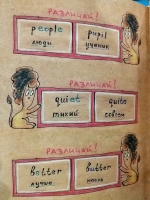 РАЗЛИЧАЙ!
people pupil
люди ученик
РАЗЛИЧАЙ!
quiet quite
тихий совсем
РАЗЛИЧАЙ!
better butter
лучше масло